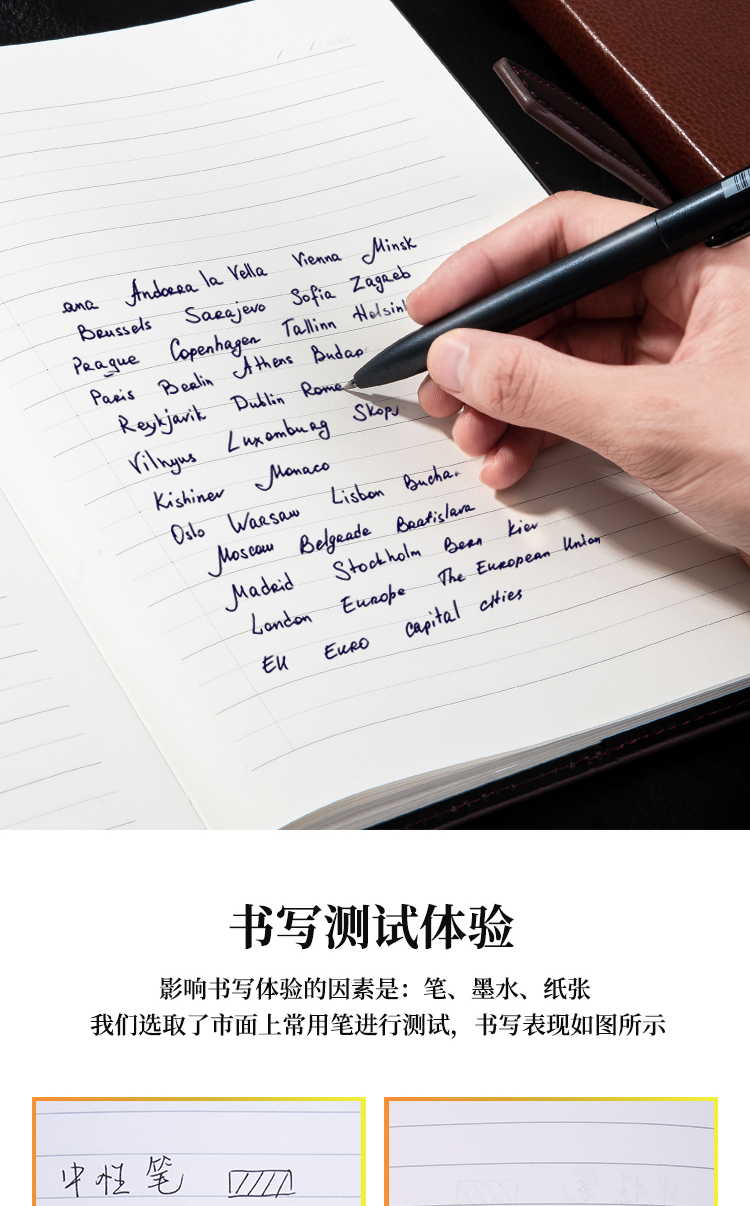 ana Andorra la Vella Vienna Minsk
Brussels Sarajevo Sofia Zagreb
Prague Copenhagen Tallinn Helsink
Paris Berlin Athens Budap
Reykjavik Dublin Rome
Vilnyus Luxemburg Skopj
Kishinev Monaco
Oslo Warsaw Lisbon Bucha
Moscow Belgrade Bratislava
Madrid Stockholm Bern Kiev
London Europe The European Union
EU EURO capital cities
书写测试体验
影响书写体验的因素是：笔、墨水、纸张
我们选取了市面上常用笔进行测试，书写表现如图所示
中性笔